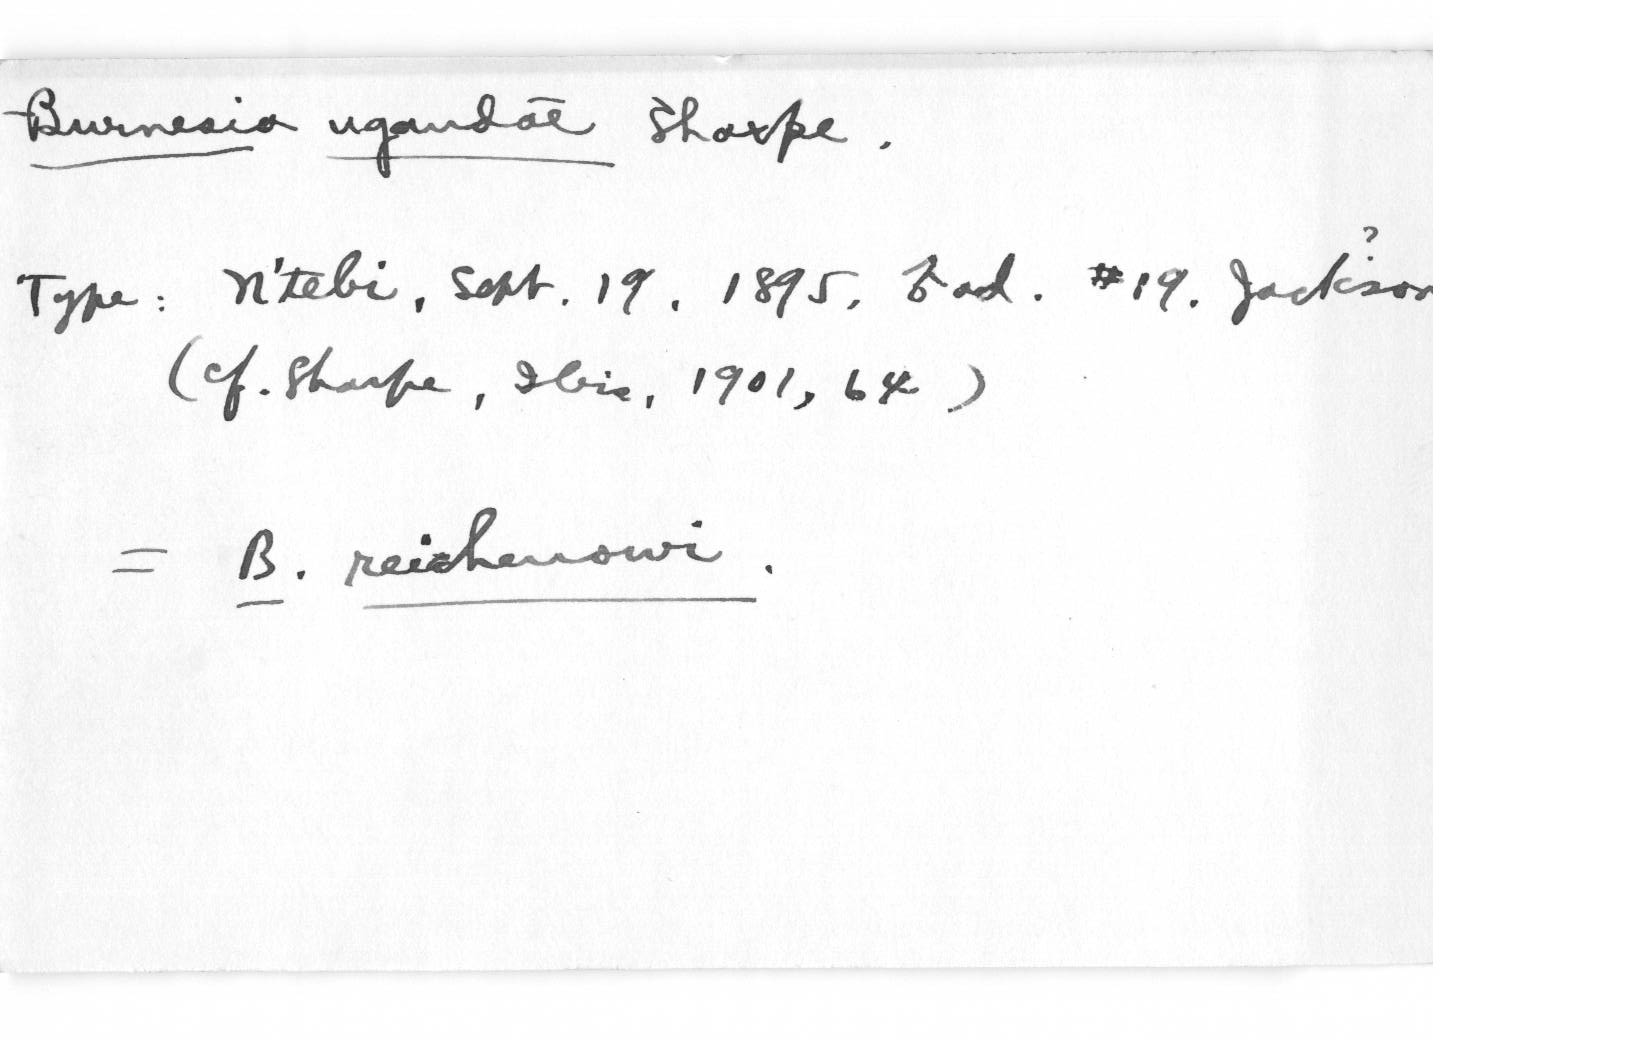 Burnesia ugandae Sharpe.
?
Type: N'tebi, Sept. 19, 1895, ad. #19. Jackson
(cf. Sharpe, Ibis, 1901, 64)
= B. reichenowi.